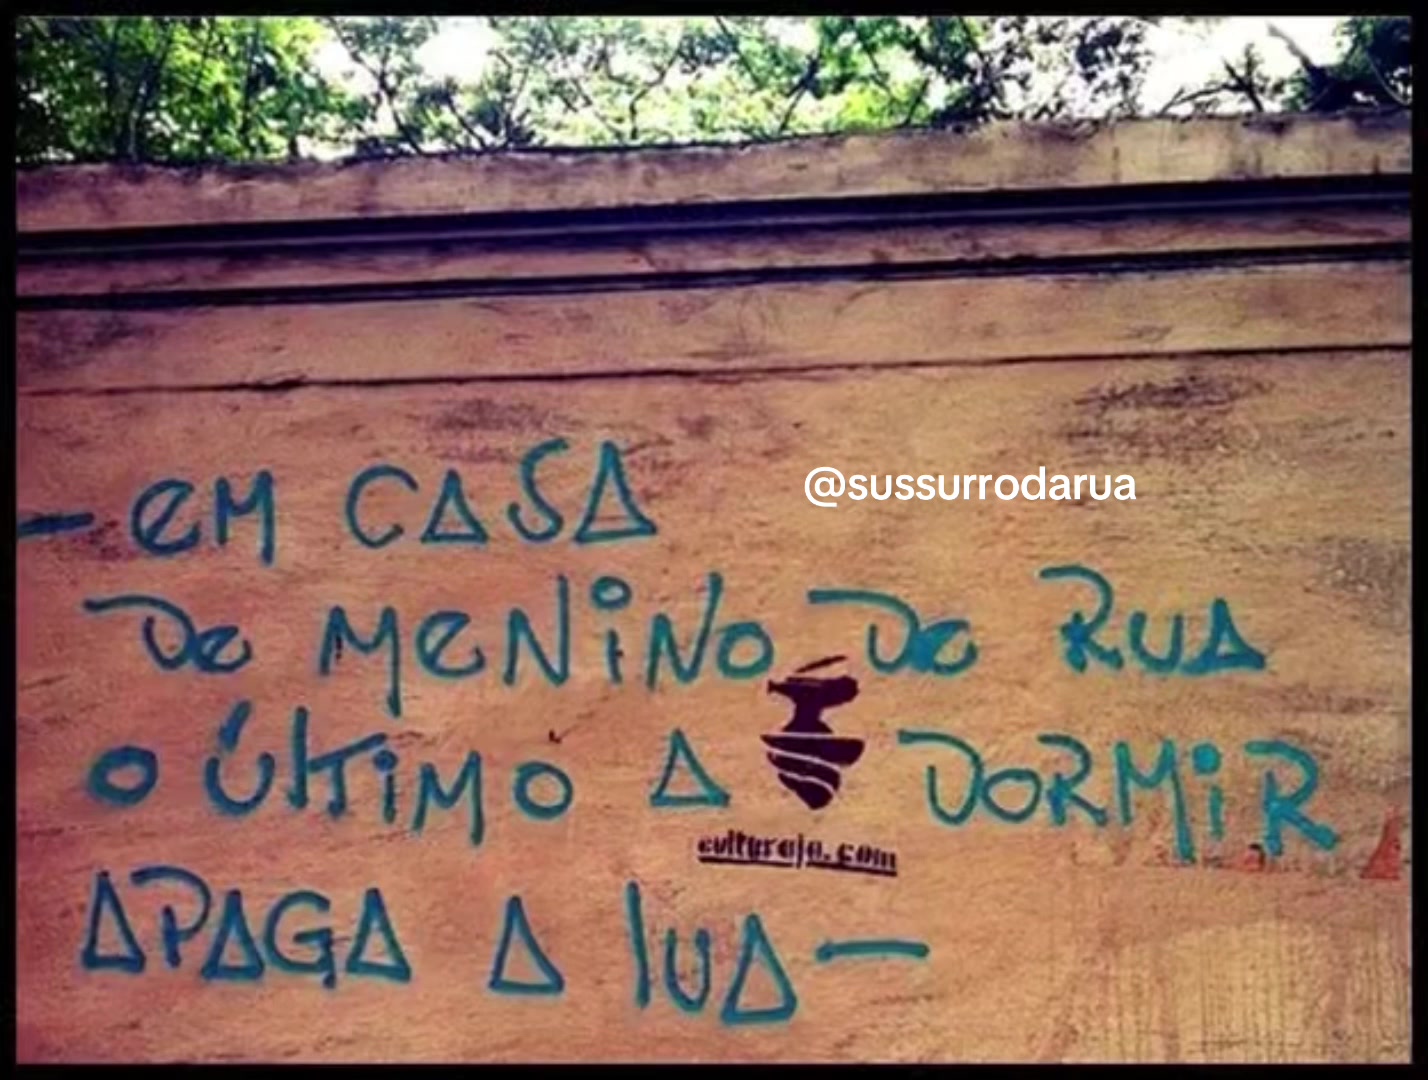 -em CASA
@sussurrodarua
De MeNiNo De RUA
o ÚLtiMo A DORMiR
culturaja.com
APAGA A lUA-